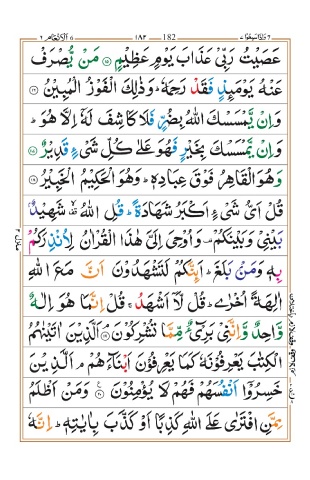 وَاِذَا سَمِعُوْا ٧ 182 ١٨٢ اَلْاَنْعَام ٦
عَصَيْتُ رَبِّيْ عَذَابَ يَوْمٍ عَظِيْمٍ ۝١٥ مَنْ يُّصْرَفْ
عَنْهُ يَوْمَىِٕذٍ فَقَدْ رَحِمَهٗؕ وَذٰلِكَ الْفَوْزُ الْمُبِيْنُ ۝١٦
وَاِنْ يَّمْسَسْكَ اللّٰهُ بِضُرٍّ فَلَا كَاشِفَ لَهٗۤ اِلَّا هُوَؕ
وَاِنْ يَّمْسَسْكَ بِخَيْرٍ فَهُوَ عَلٰى كُلِّ شَيْءٍ قَدِيْرٌ ۝١٧
وَهُوَ الْقَاهِرُ فَوْقَ عِبَادِهٖؕ وَهُوَ الْحَكِيْمُ الْخَبِيْرُ ۝١٨
قُلْ اَيُّ شَيْءٍ اَكْبَرُ شَهَادَةًؕ قُلِ اللّٰهُ ۙ شَهِيْدٌۢ
بَيْنِيْ وَبَيْنَكُمْ۫ وَاُوْحِيَ اِلَيَّ هٰذَا الْقُرْاٰنُ لِاُنْذِرَكُمْ
بِهٖ وَمَنْۢ بَلَغَؕ اَىِٕنَّكُمْ لَتَشْهَدُوْنَ اَنَّ مَعَ اللّٰهِ
اٰلِهَةً اُخْرٰىؕ قُلْ لَّاۤ اَشْهَدُۚ قُلْ اِنَّمَا هُوَ اِلٰهٌ
وَّاحِدٌ وَّاِنَّنِيْ بَرِيْٓءٌ مِّمَّا تُشْرِكُوْنَۘ ۝١٩ اَلَّذِيْنَ اٰتَيْنٰهُمُ
الْكِتٰبَ يَعْرِفُوْنَهٗ كَمَا يَعْرِفُوْنَ اَبْنَآءَهُمْۘ اَلَّذِيْنَ
خَسِرُوْۤا اَنْفُسَهُمْ فَهُمْ لَا يُؤْمِنُوْنَ ۝٢٠ وَمَنْ اَظْلَمُ
مِمَّنِ افْتَرٰى عَلَى اللّٰهِ كَذِبًا اَوْ كَذَّبَ بِاٰيٰتِهٖؕ اِنَّهٗ